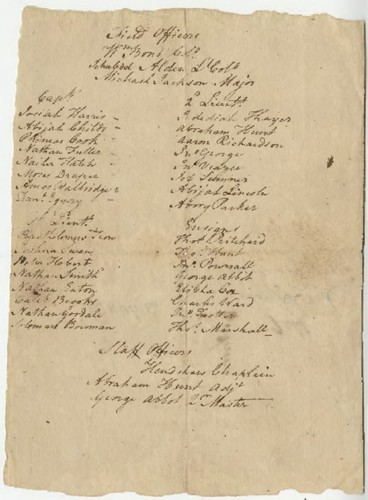 Field Officers
Wm Bond Colo.
Ichabod Alden Lt Colo.
Michael Jackson Major
Capts.
Josiah Harris
Abijah Childs
Thomas Cook
Nathan Fuller
Nailer Hatch
Moses Draper
Amos Walbridge
Danl. Egery
1st Lieuts.
Bartholomew
Joshua Swan
Nathan Smith
Nathan Eaton
Caleb Brooks
Nathan Goodale
Solomon Bowman
2d Lieuts.
Jedediah Thayer
Abraham Hunt
Aaron Richardson
Jno. George
Jno.
Job Sumner
Abijah Lincoln
Avery Parker
Ensigns
Thos. Pritchard
Thos. Hunt
George Abbot
Elisha
Charles Ward
Thos. Marshall
Staff Officers
Chaplin
Abraham Hunt Adjt
George Abbot Qr Master